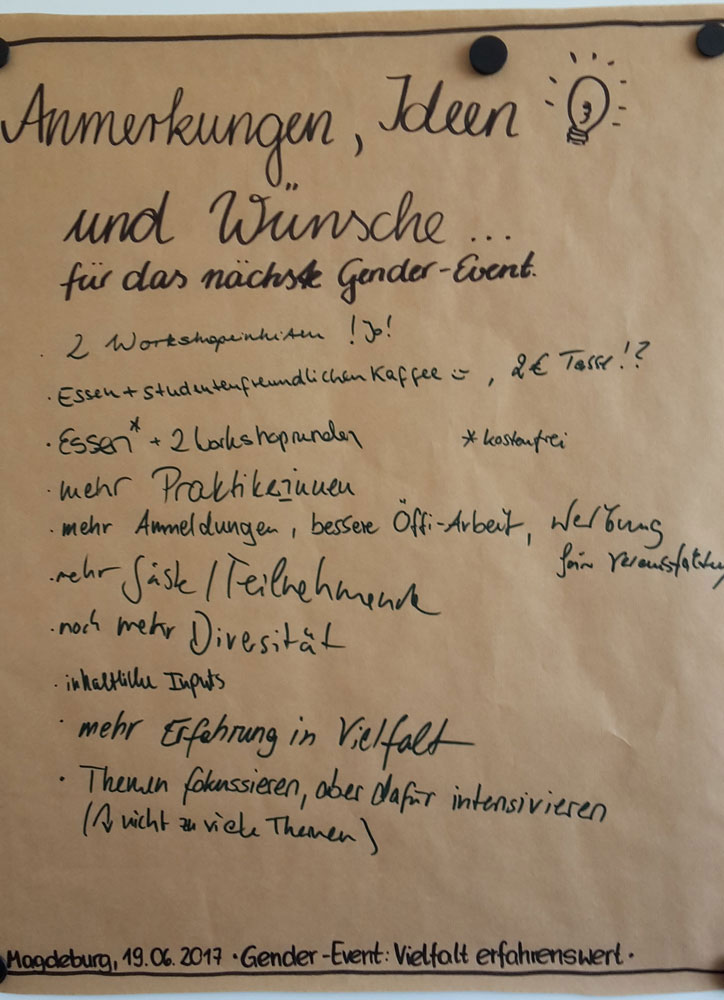 Anmerkungen, Ideen
und Wünsche...
für das nächste Gender-Event.
· 2 Workshopeinheiten ! Jo!
· Essen + studentenfreundlichen Kaffee , 2 € Tasse!?
· Essen* + 2 Workshoprunden *kostenfrei
· mehr Praktiker_innen
· mehr Anmeldungen, bessere Öffi-Arbeit, Werbung
für Veranstaltung
· mehr Gäste / Teilnehmende
· noch mehr Diversität
· inhaltliche Inputs
· mehr Erfahrung in Vielfalt
· Themen fokussieren, aber dafür intensivieren
(↳ nicht zu viele Themen)
Magdeburg, 19.06.2017 · Gender-Event: Vielfalt erfahrenswert ·